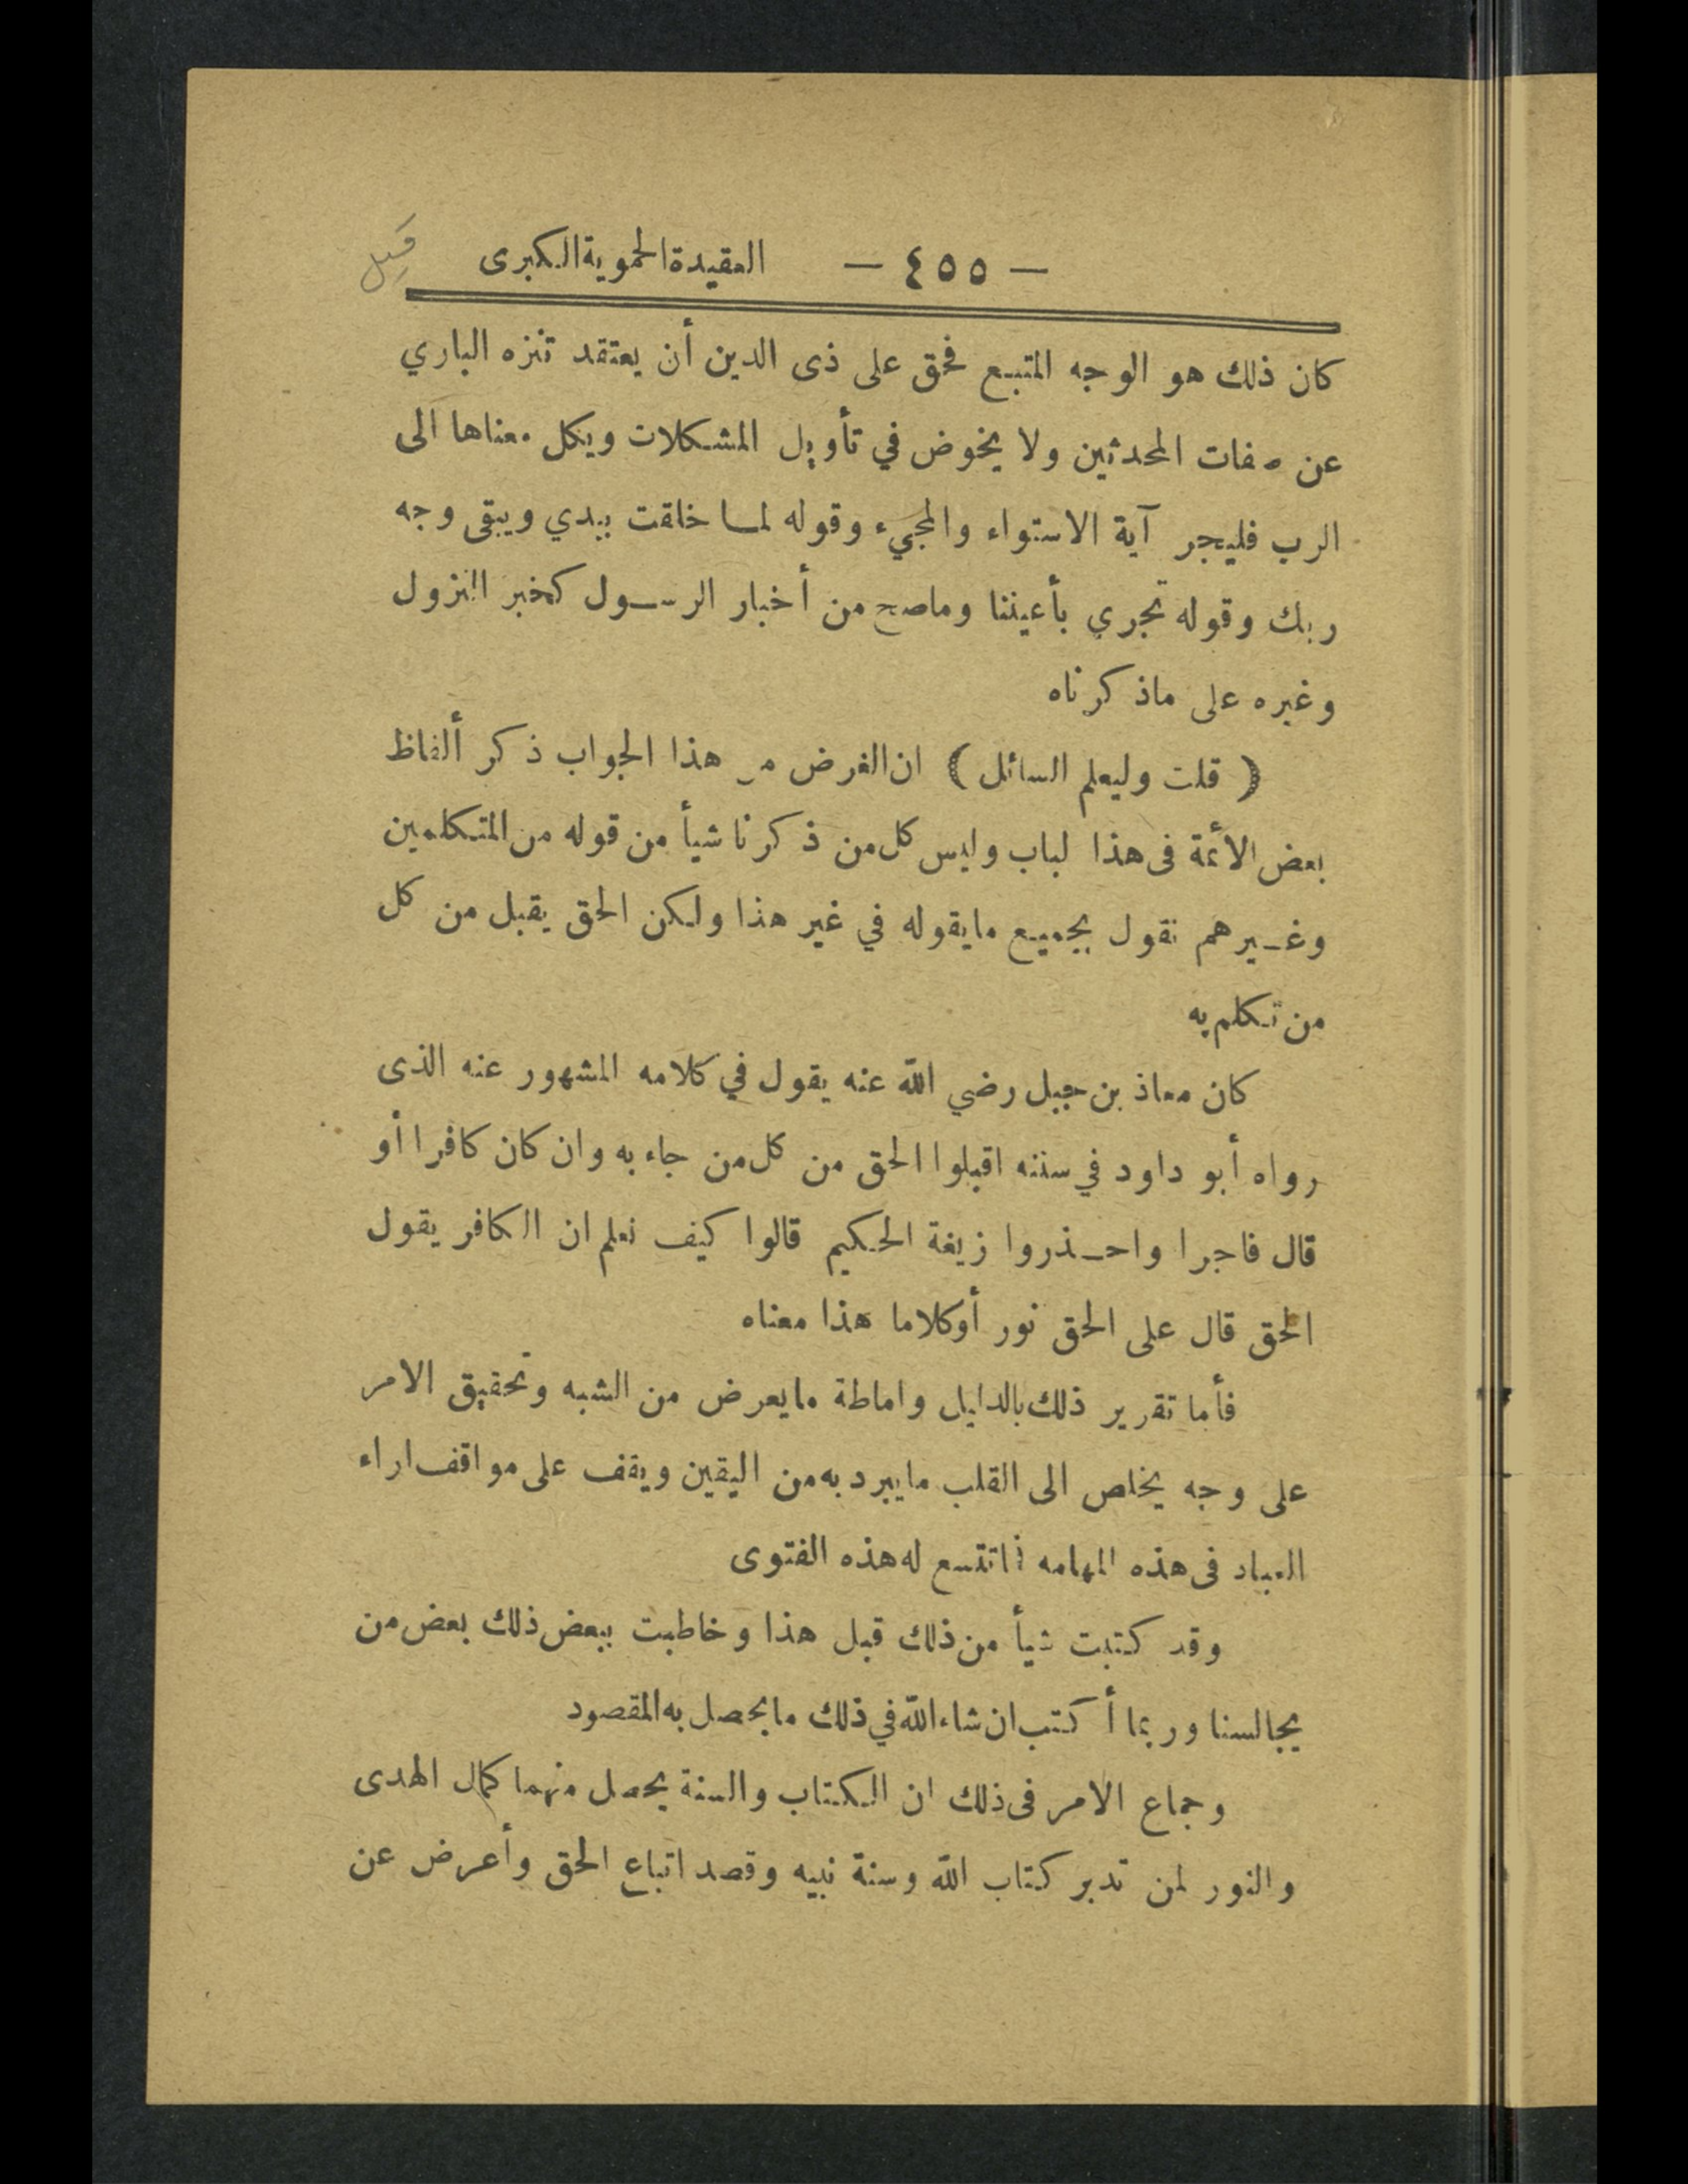 — ٤٥٥ — العقيدة الحموية الكبرى
كان ذلك هو الوجه المتبع فحق على ذى الدين أن يعتقد تنزه الباري
عن صفات المحدثين ولا يخوض في تأويل المشكلات ويكل معناها الى
الرب فليجر آية الاستواء والمجيء وقوله لما خلقت بيدي ويبقى وجه
ربك وقوله تجري بأعيننا وماصح من أخبار الرسول كخبر النزول
وغيره على ماذكرناه
( قلت وليعلم السائل ) ان الغرض من هذا الجواب ذكر ألفاظ
بعض الأئمة فى هذا لباب وليس كل من ذكرنا شيأ من قوله من المتكلمين
وغيرهم نقول بجميع مايقوله في غير هذا ولكن الحق يقبل من كل
من تكلم به
كان معاذ بن جبل رضي الله عنه يقول في كلامه المشهور عنه الذى
رواه أبو داود في سننه اقبلوا الحق من كل من جاء به وان كان كافرا أو
قال فاجرا واحذروا زيغة الحكيم قالوا كيف نعلم ان الكافر يقول
الحق قال على الحق نور أوكلاما هذا معناه
فأما تقرير ذلك بالدليل واماطة مايعرض من الشبه وتحقيق الامر
على وجه يخلص الى القلب مايبرد به من اليقين ويقف على مواقف اراء
العباد فى هذه المهامه فماتتسع له هذه الفتوى
وقد كتبت شيأ من ذلك قبل هذا وخاطبت ببعض ذلك بعض من
يجالسنا وربما أكتب ان شاء الله في ذلك مايحصل به المقصود
وجماع الامر فى ذلك ان الكتاب والسنة يحصل منهما كمال الهدى
والنور لمن تدبر كتاب الله وسنة نبيه وقصد اتباع الحق وأعرض عن